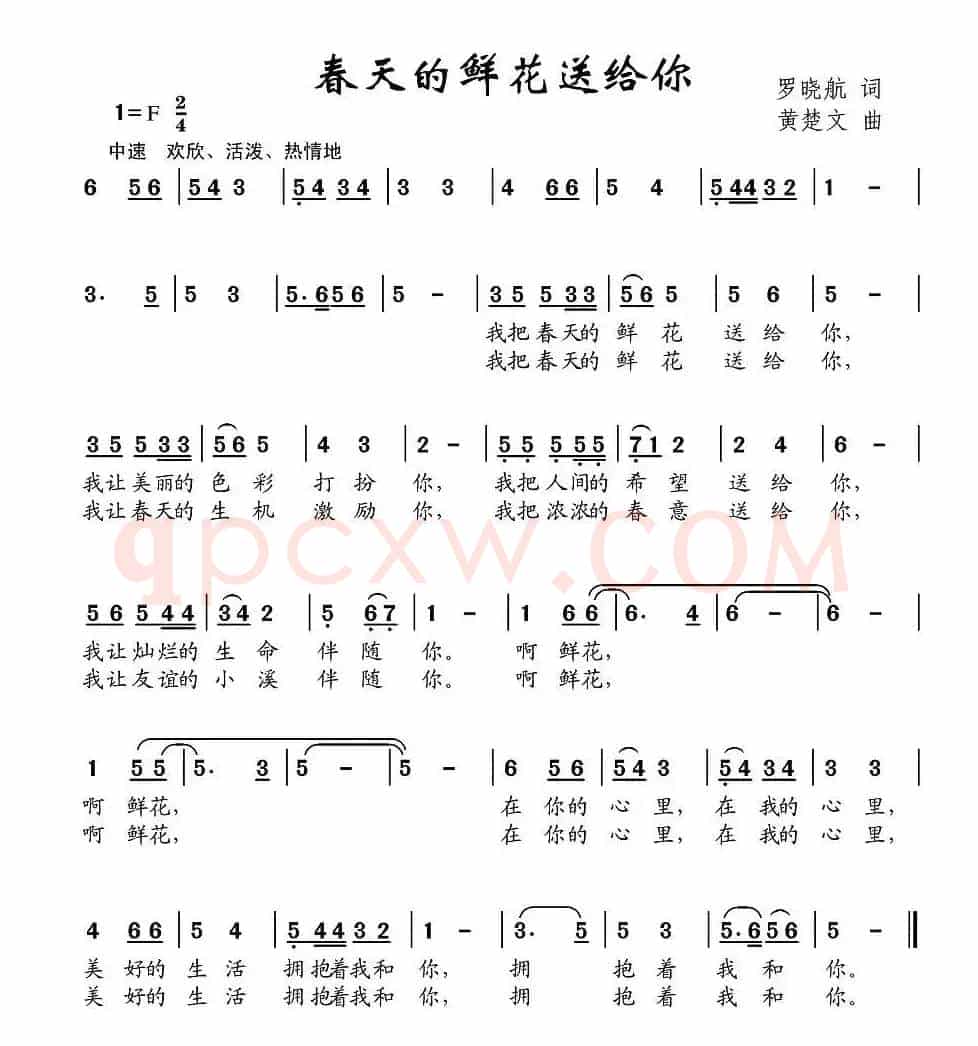 春天的鲜花送给你
罗晓航 词
1=F 2/4
黄楚文 曲
中速 欢欣、活泼、热情地
6 56 | 54 3 | 54 34 | 3 3 | 4 66 | 5 4 | 54432 | 1 - |
3. 5 | 5 3 | 5.656 | 5 - | 35 533 | 56 5 | 5 6 | 5 - |
我把春天的 鲜 花 送 给 你,
我把春天的 鲜 花 送 给 你,
35 533 | 56 5 | 4 3 | 2 - | 55 555 | 71 2 | 2 4 | 6 - |
我让美丽的 色 彩 打 扮 你, 我把人间的 希 望 送 给 你,
我让春天的 生 机 激 励 你, 我把浓浓的 春 意 送 给 你,
qpcxw.COM
56 544 | 34 2 | 5 67 | 1 - | 1 66 | 6. 4 | 6 - | 6 - |
我让灿烂的 生 命 伴 随 你。 啊 鲜花,
我让友谊的 小 溪 伴 随 你。 啊 鲜花,
1 55 | 5. 3 | 5 - | 5 - | 6 56 | 54 3 | 54 34 | 3 3 |
啊 鲜花, 在 你的 心 里, 在 我的 心 里,
啊 鲜花, 在 你的 心 里, 在 我的 心 里,
4 66 | 5 4 | 54432 | 1 - | 3. 5 | 5 3 | 5.656 | 5 - ‖
美 好的 生 活 拥抱着我和 你, 拥 抱 着 我 和 你。
美 好的 生 活 拥抱着我和 你, 拥 抱 着 我 和 你。